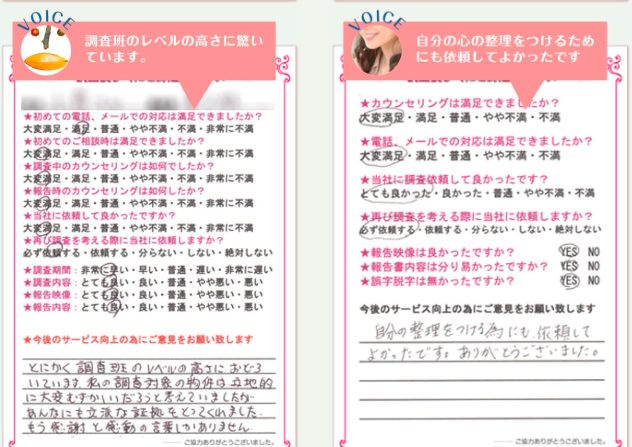 VOICE
調査班のレベルの高さに驚い
ています。
★初めての電話、メールでの対応は満足できましたか?
大変満足・満足・普通・やや不満・不満・非常に不満
★初めてのご相談時は満足できましたか?
大変満足・満足・普通・やや不満・不満・非常に不満
★調査中のカウンセリングは如何でしたか?
大変満足・満足・普通・やや不満・不満・非常に不満
★報告時のカウンセリングは如何したか?
大変満足・満足・普通・やや不満・不満・非常に不満
★当社に依頼して良かったですか?
大変満足・満足・普通・やや不満・不満・非常に不満
★再び調査を考える際に当社に依頼しますか?
必ず依頼する・依頼する・分らない・しない・絶対しない
★調査期間:非常に早い・早い・普通・遅い・非常に遅い
★調査内容:とても良い・良い・普通・やや悪い・悪い
★報告映像:とても良い・良い・普通・やや悪い・悪い
★報告内容:とても良い・良い・普通・やや悪い・悪い
★今後のサービス向上の為にご意見をお願い致します
とにかく調査班のレベルの高さにおどろ
いています。私の調査対象の物件は立地的
に大変むずかしいだろうと考えていましたが
あんなにも立派な証拠をとってくれました。
もう感謝と感動の言葉しかありません
ご協力ありがとうございました。
VOICE
自分の心の整理をつけるため
にも依頼してよかったです
★カウンセリングは満足できましたか?
大変満足・満足・普通・やや不満・不満
★電話、メールでの対応は満足できましたか?
大変満足・満足・普通・やや不満・不満
★当社に調査依頼して良かったですか?
とても良かった・良かった・普通・やや不満・不満
★再び調査を考える際に当社に依頼しますか?
必ず依頼する・依頼する・分らない・しない・絶対しない
★報告映像は良かったですか? YES NO
★報告書内容は分り易かったですか? YES NO
★誤字脱字は無かったですか? YES NO
今後のサービス向上の為にご意見をお願い致します
自分の整理をつける為にも、依頼して
よかったです。ありがとうございました。
ご協力ありがとうございました。